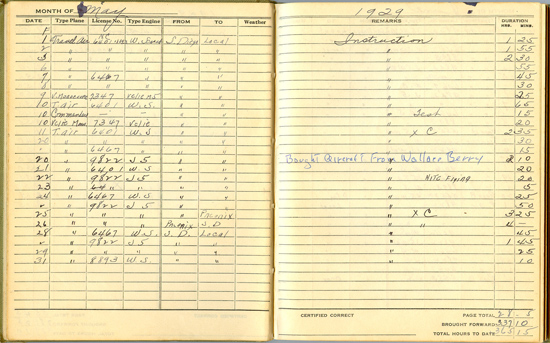 MONTH OF May 1929
DATE Type Plane License No. Type Engine FROM TO Weather REMARKS DURATION
HRS. MINS.
1 Travel Air W. S. Diego Local Instruction 1 25
1 " " " " " " 1 55
3 " " " " " " 2 30
6 " " " " " " 55
7 " 6467 " " " " 45
8 " " " " " " 30
9 7347 " " " 25
10 T. air 6401 W.S. " " "
10 Commander — — " " " Test 15
10 7347 Velie " " " 20
11 T. air W.S " " " X C 2 35
" " " " " " 30
" " 6467 " " " " 15
20 " 9822 J 5 " " Bought Aircraft From Wallace Berry 2 10
21 " 6401 W S " " " 20
22 " 9822 J.5 " " " Nite Flying 20
23 " " " " " 5
24 " 6467 W.S " " " 25
" " 9822 J 5 " " " 50
25 " " " " Phoenix " X C 3 25
26 " " " Phoenix S.D " " 4 —
28 " 6467 W.S. S.D. Local " 45
" " 9822 J 5 " " " 1 45
29 " " " " " " 25
31 " 8893 W.S. " " " 10
CERTIFIED CORRECT PAGE TOTAL 28 5
BROUGHT FORWARD 337 10
TOTAL HOURS TO DATE 365 15